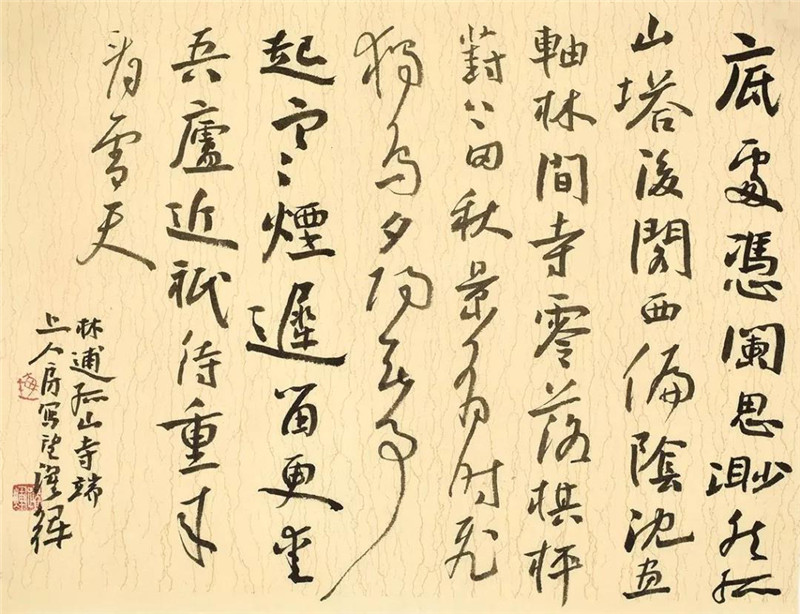 底處憑闌思渺然孤
山塔後閣西偏陰沈畫
軸林間寺零落棋枰
葑上田秋景有時飛
獨鳥夕陽無事
起寒煙遲留更愛
吾廬近祇待重來
看雪天
林逋孤山寺端
上人房寫望